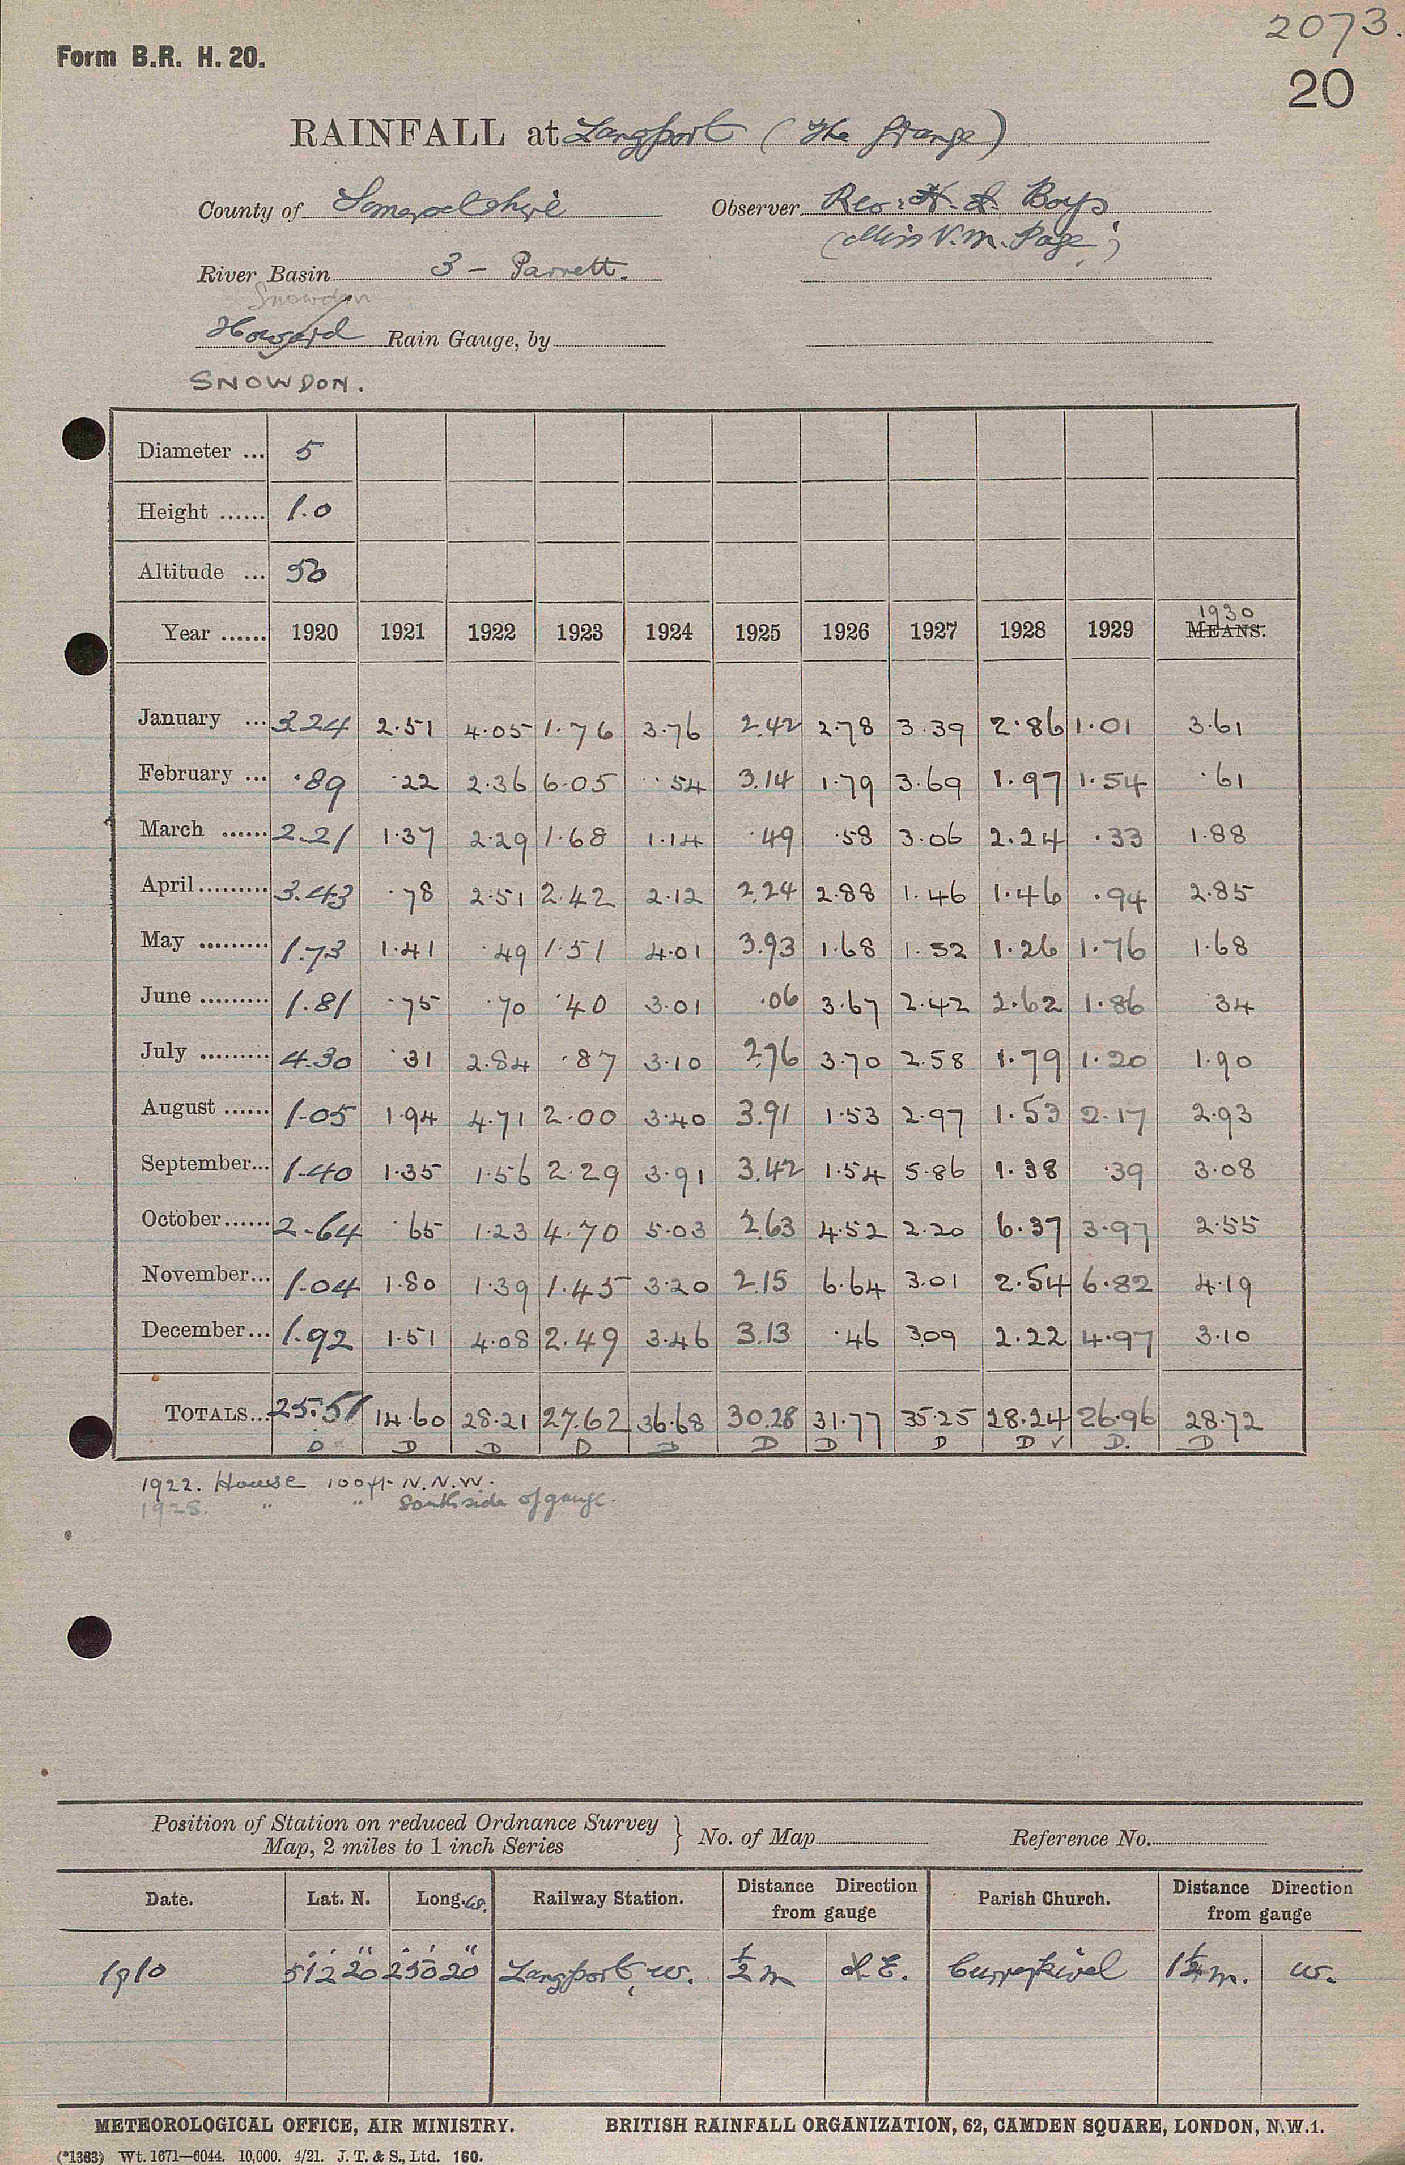 2073.
Form B.R. H. 20.
20
RAINFALL at Langport (The Grange)
County of Somersetshire Observer Rev. H. A. Boys
(Miss V. M. Page)
River Basin 3 - Parrett.
Snowdon
Howard Rain Gauge, by
SNOWDON.
Diameter ... 5
Height ...... 1.0
Altitude ... 50
1930
Year ...... 1920 1921 1922 1923 1924 1925 1926 1927 1928 1929 MEANS.
January ... 3.24 2.51 4.05 1.76 3.76 2.42 2.78 3.39 2.86 1.01 3.61
February ... .89 .22 2.36 6.05 .54 3.14 1.79 3.69 1.97 1.54 .61
March ...... 2.21 1.37 2.29 1.68 1.14 .49 .58 3.06 2.24 .33 1.88
April ......... 3.43 .78 2.51 2.42 2.12 2.24 2.88 1.46 1.46 .94 2.85
May ......... 1.73 1.41 .49 1.51 4.01 3.93 1.68 1.52 1.26 1.76 1.68
June ......... 1.81 .75 .70 .40 3.01 .06 3.67 2.42 2.62 1.86 .34
July ......... 4.30 .31 2.84 .87 3.10 2.76 3.70 2.58 1.79 1.20 1.90
August ...... 1.05 1.94 4.71 2.00 3.40 3.91 1.53 2.97 1.53 2.17 2.93
September... 1.40 1.35 1.56 2.29 3.91 3.42 1.54 5.86 1.38 .39 3.08
October...... 2.64 .65 1.23 4.70 5.03 2.63 4.52 2.20 6.37 3.97 2.55
November... 1.04 1.80 1.39 1.45 3.20 2.15 6.64 3.01 2.54 6.82 4.19
December... 1.92 1.51 4.08 2.49 3.46 3.13 .46 3.09 2.22 4.97 3.10
TOTALS... 25.51 14.60 28.21 27.62 36.68 30.28 31.77 35.25 28.24 26.96 28.72
D D D D D D D D D ✓ D. D
1922. House 100ft. N.N.W.
1925. " " South side of gauge.
Position of Station on reduced Ordnance Survey
Map, 2 miles to 1 inch Series } No. of Map Reference No.
Date. Lat. N. Long. W. Railway Station. Distance Direction from gauge Parish Church. Distance Direction from gauge
1910 51° 2' 20" 2° 50' 20" Langport, W. ½ m S.E. Curry Rivel 1½ m. W.
METEOROLOGICAL OFFICE, AIR MINISTRY. BRITISH RAINFALL ORGANIZATION, 62, CAMDEN SQUARE, LONDON, N.W.1.
(*1383) Wt. 1671—6044. 10,000. 4/21. J. T. & S., Ltd. 160.